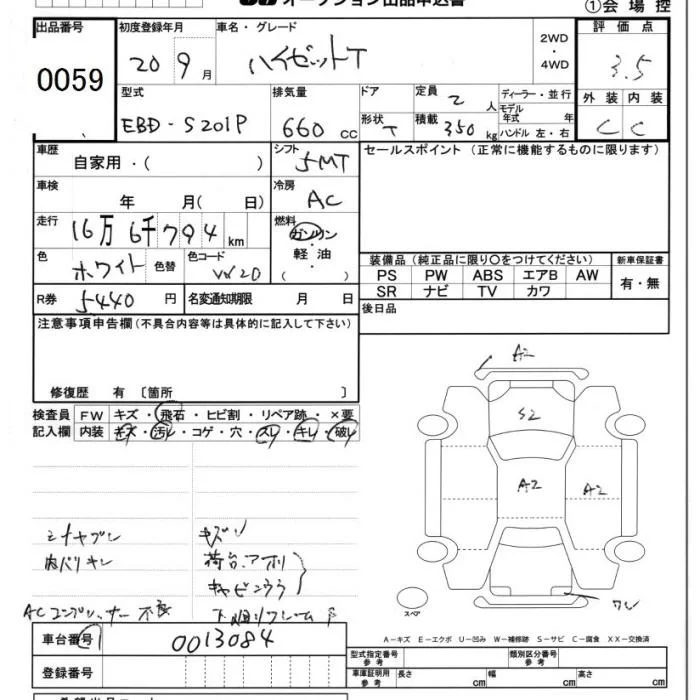 オークション出品申込書 ①会場控
出品番号 初度登録年月 車名・グレード 2WD ・ 4WD 評価点
0059 20 9月 ハイゼットT 3.5
型式 排気量 ドア 定員 2人 ディーラー・並行 外装 内装
EBD-S201P 660cc 形状 T 積載 350kg モデル年式 年 ハンドル 左・右 C C
車歴 自家用・( ) シフト 5MT セールスポイント(正常に機能するものに限ります)
車検 年 月( 日) 冷房 AC
走行 16万6千794km 燃料 ガソリン・軽油・( )
色 ホワイト 色替 色コード W20
装備品(純正品に限り○をつけてください) 新車保証書
PS PW ABS エアB AW 有・無
SR ナビ TV カワ
R券 5440円 名変通知期限 月 日 後日品
注意事項申告欄(不具合内容等は具体的に記入して下さい)
修復歴 有 〔箇所 〕
検査員 FW キズ・飛石・ヒビ割・リペア跡・×要
記入欄 内装 キズ・汚れ・コゲ・穴・スレ・キレ・破れ
A2
S2
A2 A2
ミナヤブレ キズ
内バリキレ 荷台、アオリ
キャビンウラ
ACコンプレッサー不良 下廻リフレームサ
スペア
A-キズ E-エクボ U-凹み W-補修跡 S-サビ C-腐食 XX-交換済
車台番号 0013084
型式指定番号 参考 類別区分番号 参考
登録番号 車庫証明用 参考 長さ cm 幅 cm 高さ cm